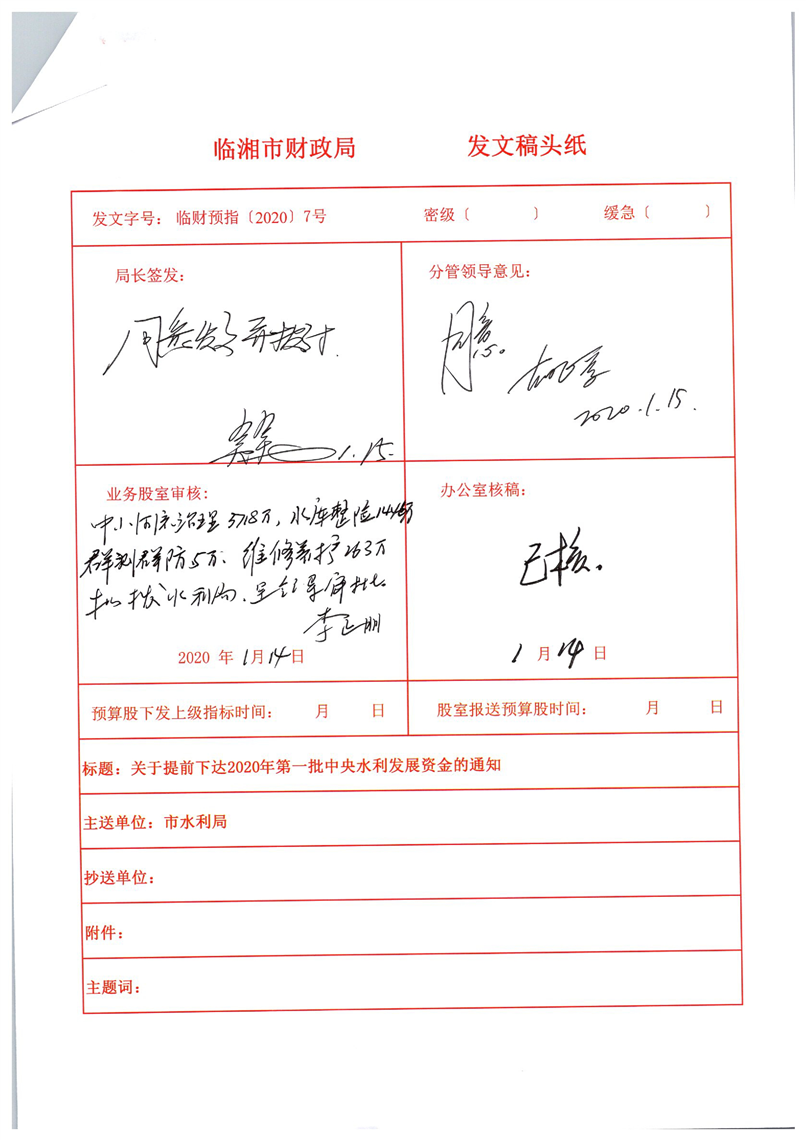 临湘市财政局 发文稿头纸
发文字号： 临财预指〔2020〕7号 密级〔 〕 缓急〔 〕
局长签发：
同意发文并拨付.
1.15.
分管领导意见：
同意。
2020.1.15.
业务股室审核：
中小河流治理3718万，水库整险144万
群测群防5万、维修养护263万
批拨水利局、呈领导审批。
李正明
2020 年 1月14日
办公室核稿：
已核。
1 月 14 日
预算股下发上级指标时间： 月 日
股室报送预算股时间： 月 日
标题：关于提前下达2020年第一批中央水利发展资金的通知
主送单位：市水利局
抄送单位：
附件：
主题词：